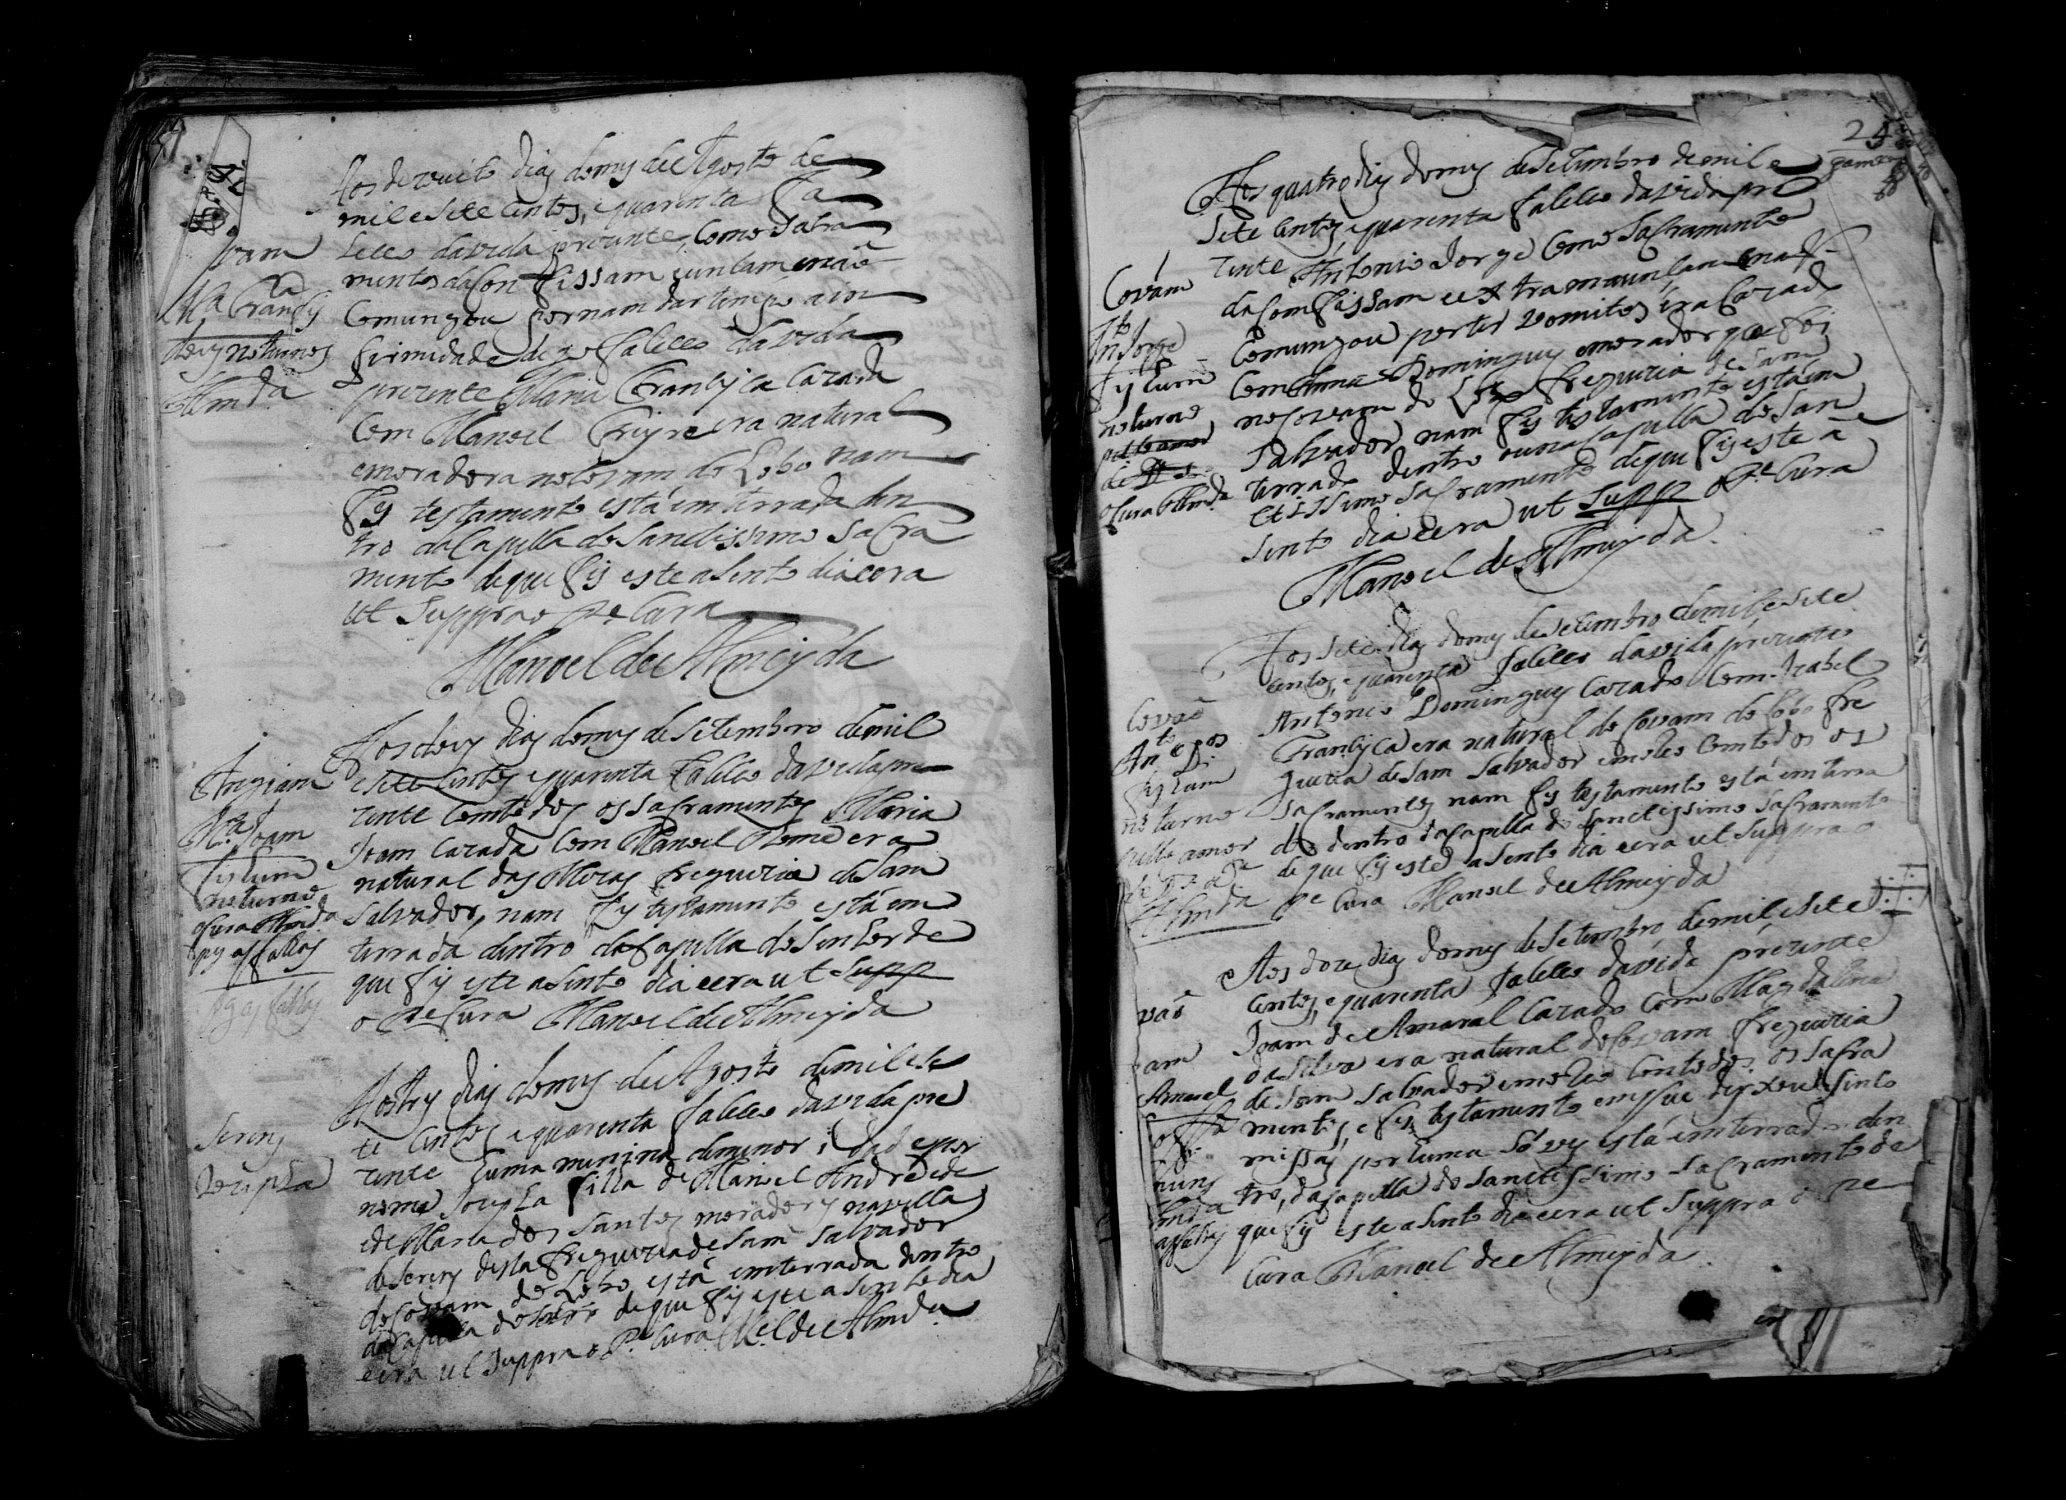 Aos dezouito dias do mes de Agosto de
mil e sete centos, e quarenta fa
leceo da vida prezente, com o sacra
mento da confissam juntam não
comungou por nam dar tempo a in
firmidade de que faleceo da vida
prezente Maria Francisca cazada
com Manoel Freyre era natural
e moradora no Covam do Lobo nam
fes testamento está emterrada den
tro da Capella do Sanctissimo Sacra
mento de que fis este asento dia e era
ut Suppra o Pe Cura
Manoel de Almeyda
Covam
Ma Francisca
noturnos
Almda
Aos dous dias do mes de Setembro de mil
e sete centos e quarenta faleceo da vida pre
zente com todos os sacramentos Maria
Joam cazada com Manoel Thome era
natural das Moitas freguezia de Sam
Salvador, nam fes testamento está em
terrada dentro da Capella do Senhor de
que fis este asento dia e era ut Supp
o Pe Cura Manoel de Almeyda
Ma Joam
fes hum
noturno
o Cura Almda
Aos tres dias do mes de Agosto de mil e se
te centos e quarenta faleceo da vida pre
zente huma menina de menor idade por
nome Jozepha filha de Manoel Andre e de
e de Maria dos Santos moradores na villa
de Serem desta freguezia de Sam Salvador
do Covam do Lobo está emterrada dentro
da Capella do Senhor de que fis este asento dia
e era ut Suppra o Pe Cura Mel de Almda
Serem
Jozepha
24
Aos quatro dias do mes de Setembro de mil e
sete centos e quarenta faleceo da vida pre
zente Antonio Jorge com o Sacramento
da Comfissam e extrema unsam nam
comungou por ter vomitos era cazado
com Anna Domingues e morador que foi
no Covam do Lobo freguezia de Sam
Salvador nam fes testamento está em
terrado dentro na Capella do San
ctissimo Sacramento de que fis este a
sento dia e era ut Supp o Pe Cura
Manoel de Almeyda
Covam
Anto Jorge
fes hum
noturno
o Cura Almda
Aos sete dias do mes de Setembro de mil e sete
centos, e quarenta faleceo da vida prezente
Antonio Domingues cazado com Izabel
Francisca era natural do Covam do Lobo fre
guezia de Sam Salvador emoleo com todos os
sacramentos nam fes testamento está emterra
do dentro da Capella do Sanctissimo Sacramento
de que fis este asento dia e era ut Suppra o
Pe Cura Manoel de Almeyda
Covaõ
Anto
fes hum
noturno
pello amor
de Ds
Almda
Aos doze dias do mes de Setembro de mil e sete
centos, e quarenta faleceo da vida prezente
Joam de Amaral cazado com Magdalena
da Silva era natural do Covam freguezia
de Sam Salvador emoleo com todos os Sacra
mentos, e fes testamento em que dexou sinco
missas por huma só ves está emterrado den
tro, da Capella do Sanctissimo Sacramento de
que fis este asento dia e era ut Suppra o Pe
Cura Manoel de Almeyda
vaõ
am
Amaral